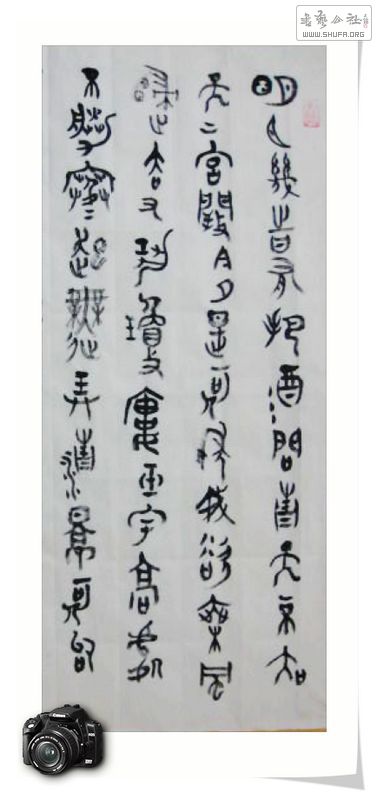 书艺公社
WWW.SHUFA.ORG
明月幾時有把酒問青天不知
天上宮闕今夕是何年我欲乘風
歸去又恐瓊樓玉宇高處
不勝寒起舞弄清影何似
Canon